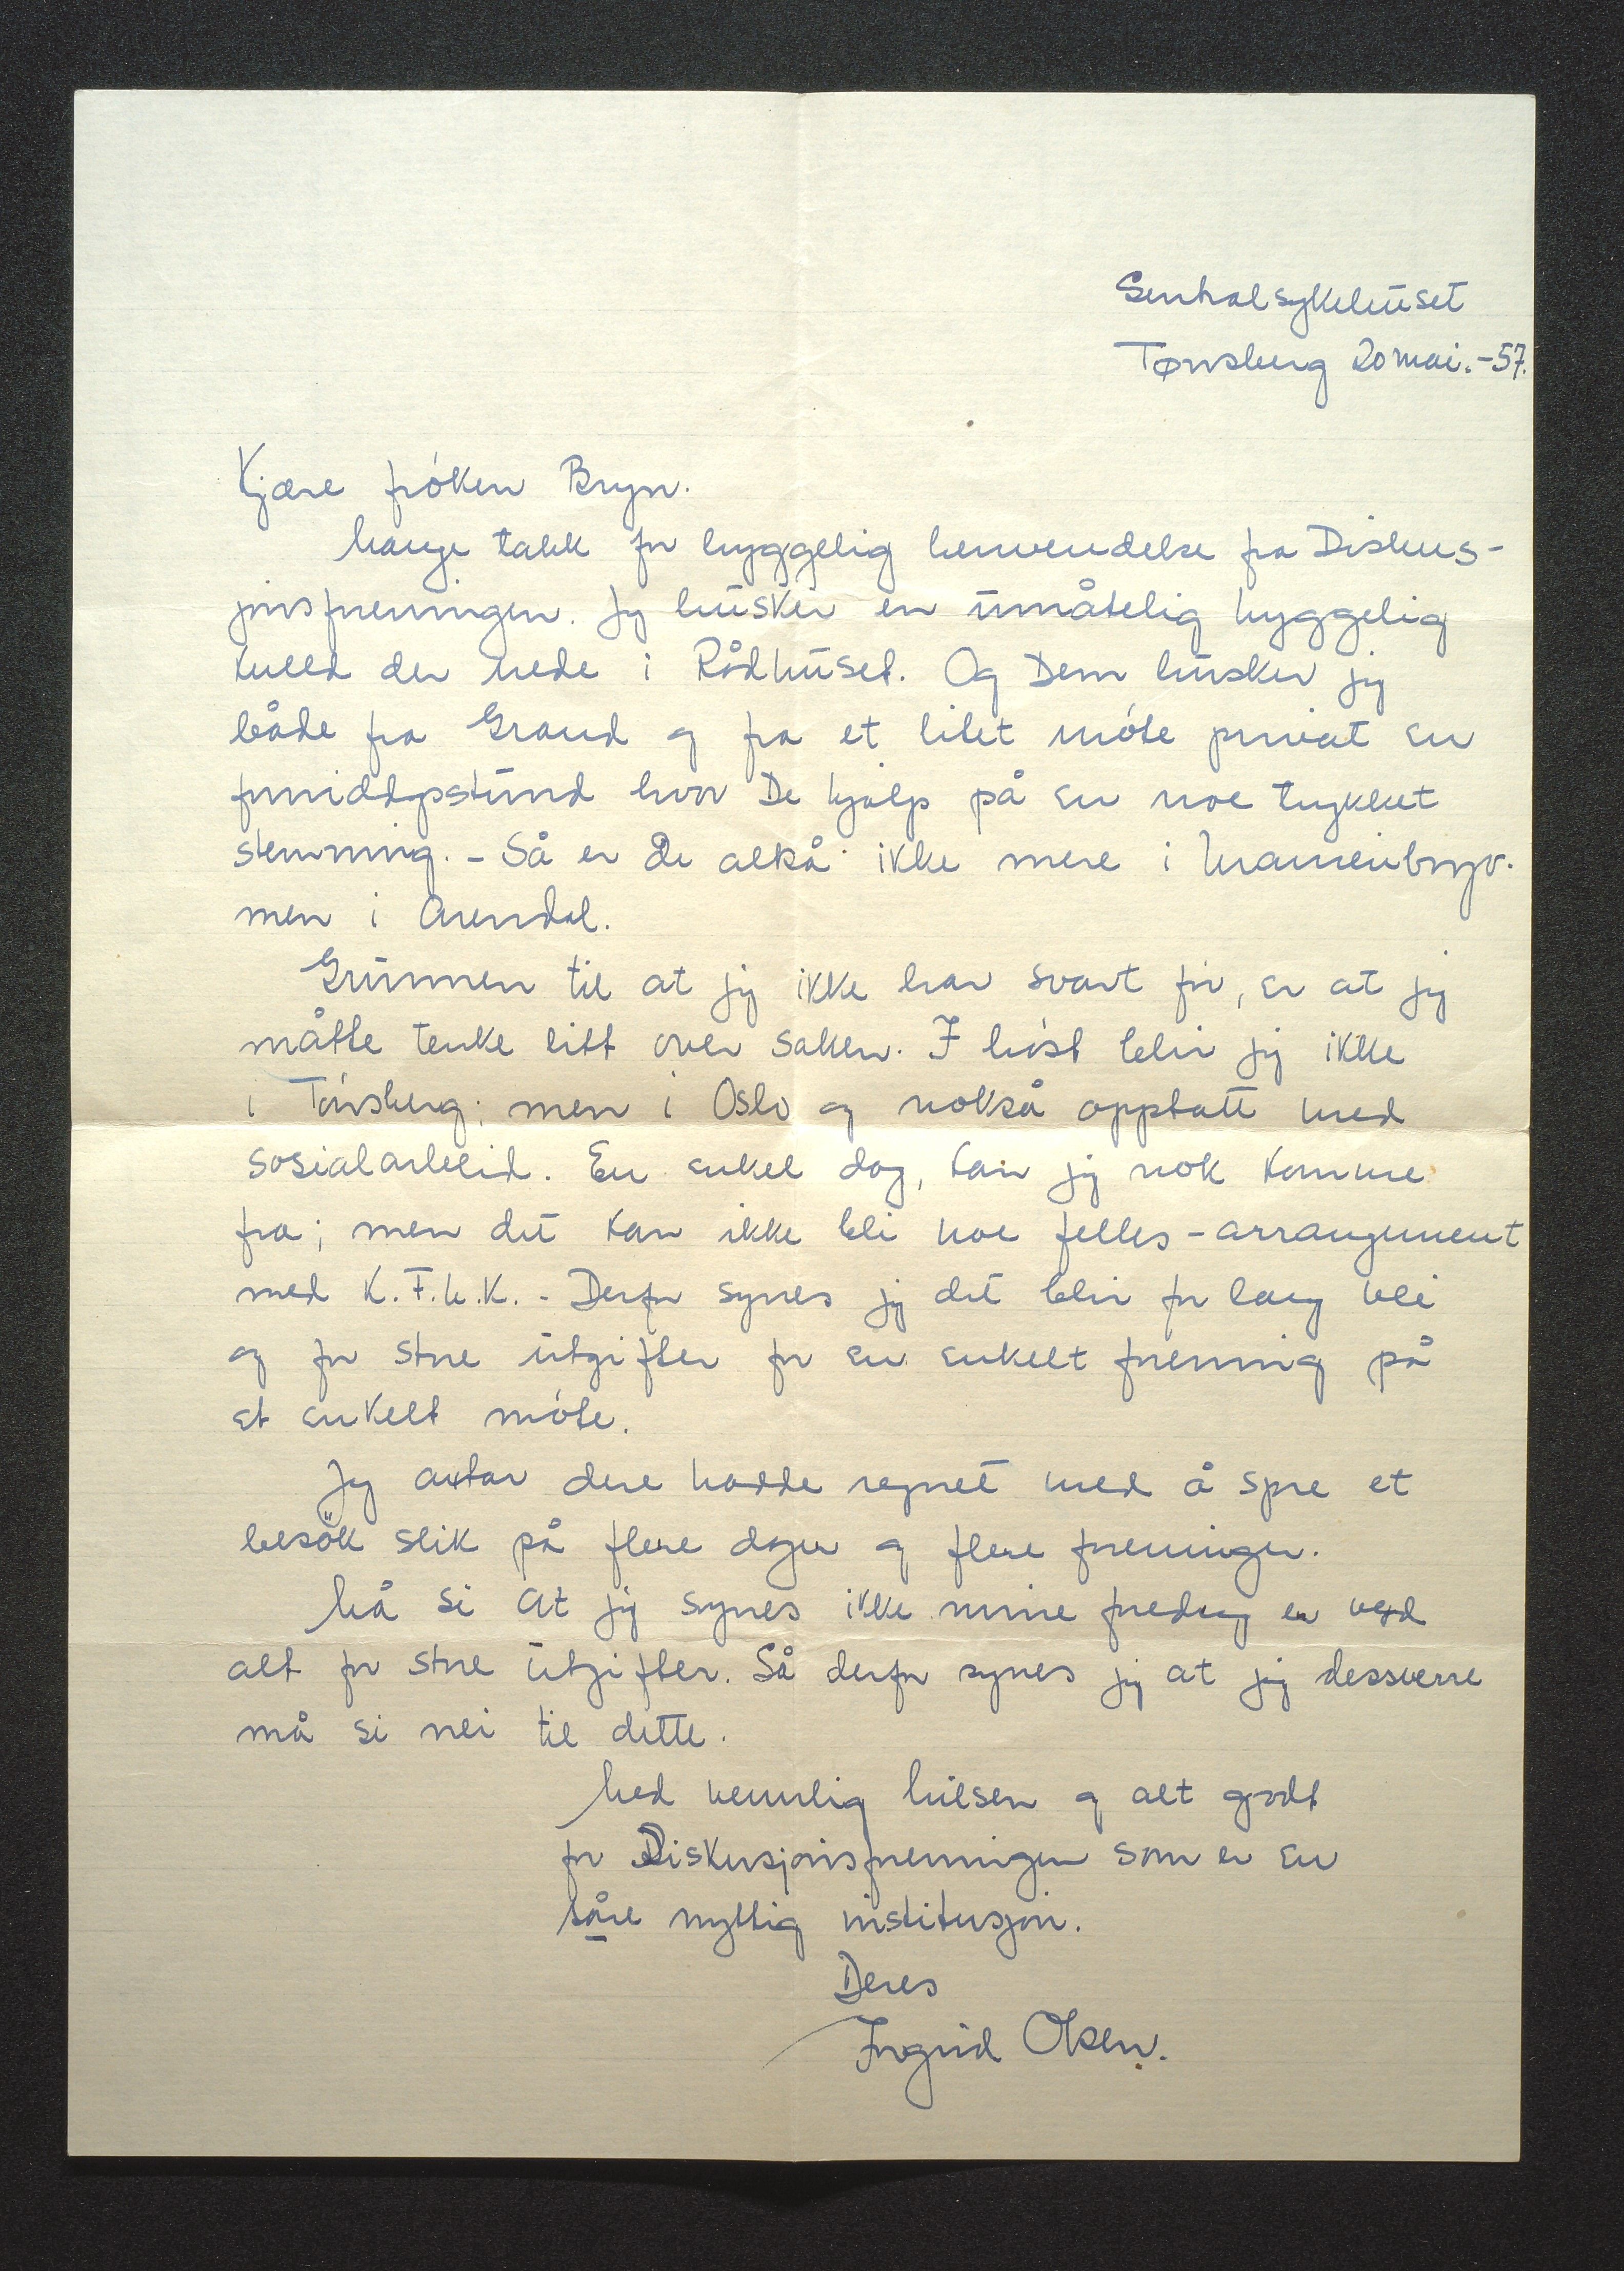 Sentralsykehuset
Tønsberg 20 mai. -57.
Kjære frøken Bryn.
Mange takk for hyggelig henvendelse fra Diskus-
jonsforeningen. Jeg husker en umåtelig hyggelig
kveld der nede i Rådhuset. Og Dem husker jeg
både fra Grand og fra et litet møte privat en
formiddagsstund hvor De hjalp på en noe trykket
stemning. - Så er De altså ikke mere i
men i Arendal.
Grunnen til at jeg ikke har svart før, er at jeg
måtte tenke litt over saken. I høst blir jeg ikke
i Tønsberg; men i Oslo og nokså opptatt med
sosialarbeid. En enkel dag, kan jeg nok komme
fra; men det kan ikke bli noe felles-arrangement
med K.F.U.K. - Derfor synes jeg det blir for lang vei
og for store utgifter for en enkelt forening på
et enkelt møte.
Jeg antar dere hadde regnet med å spre et
besök slik på flere dager og flere foreninger.
Må si at jeg synes ikke mine foredrag er verd
alt for store utgifter. Så derfor synes jeg at jeg dessverre
må si nei til dette.
Med vennlig hilsen og alt godt
for Diskusjonsforeningen som er en
såre nyttig institusjon.
Deres
Ingrid Olsen.